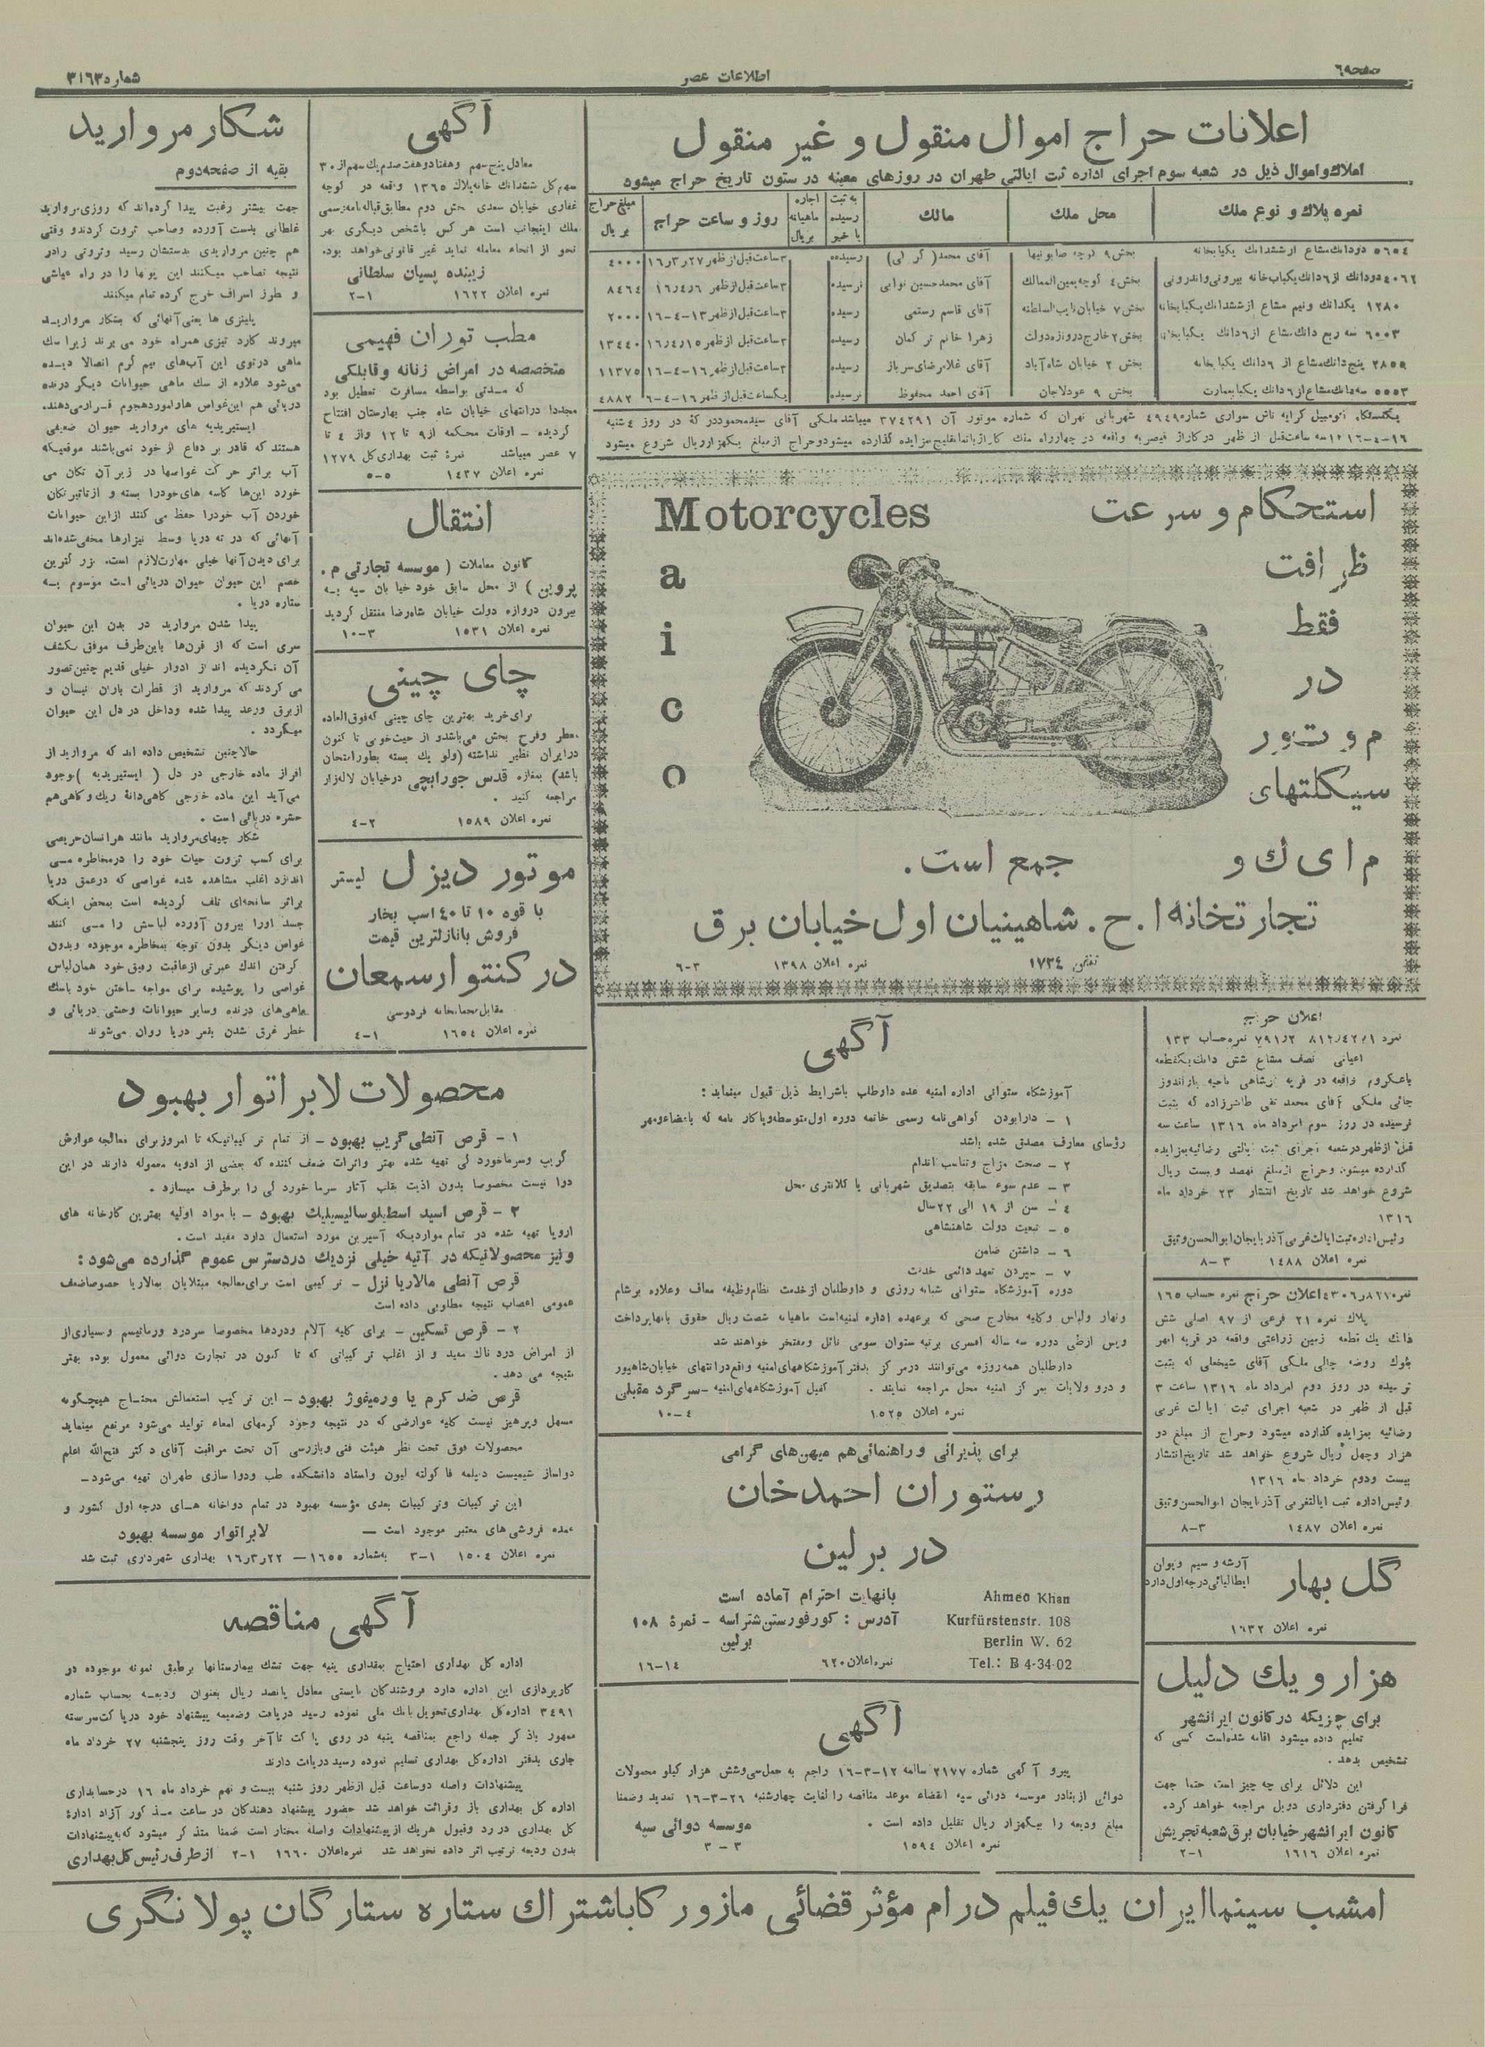 صفحه ٦
اطلاعات عصر
شماره ٣١٦٣
اعلانات حراج اموال منقول و غیر منقول
املاك واموال ذیل در شعبه سوم اجرای اداره ثبت ایالتی طهران در روزهای معینه در ستون تاریخ حراج میشود
نمره پلاك و نوع ملك
محل ملك
مالك
به ثبت رسیده یا خیر
اجاره ماهیانه بریال
روز و ساعت حراج
مبلغ حراج بریال
٥٦٠٤ دودانك مشاع از ششدانك یکبابخانه
آقای محمد
رسیده
٣ساعت قبل از ظهر ١٦٫٣٫٢٧
٤٠٠٠
بخش ٤ کوچه یمین‌الممالك
آقای محمدحسین نوابی
نرسیده
٣ساعت قبل از ظهر ١٦٫٤٫٦
٨٤٦٤
١٢٨٠ یکدانك ونیم مشاع از ششدانك یکبابخانه
بخش ٧ خیابان نایب السلطنه
آقای قاسم رستمی
رسیده
٣ساعت قبل از ظهر ١٣-٤-١٦
٢٠٠٠
٦٠٠٣ سه ربع دانك مشاع از ٦دانك یکبابخانه
بخش ٢ خارج دروازه دولت
زهرا خانم ترکمان
رسیده
٣ساعت قبل از ظهر ١٦٫٤٫١٥
١٣٤٤٠
٢٨٥٥ پنج دانك مشاع از ٦ دانك یکبابخانه
بخش ٢ خیابان شاه‌آباد
آقای غلامرضای سرباز
رسیده
٣ساعت قبل از ظهر ١٦-٤-١٦
١١٣٧٥
٥٥٥٣ سه دانك مشاع از ٦ دانك یکبابعمارت
بخش ٩ عودلاجان
آقای احمد محفوظ
نرسیده
یکساعت قبل از ظهر ١٦-٤-٦
٤٨٨٢
استحکام و سرعت
ظرافت
فقط
در
موتور
سیکلتهای
م ای ك و
جمع است.
Motorcycles
a
i
c
o
تجارتخانه ا. ح. شاهینیان اول خیابان برق
تلفن ١٧٣٤
نمره اعلان ١٣٩٨
٣-٦
آگهی
غفاری خیابان سعدی بخش دوم مطابق قباله نامه رسمی
ملك اینجانب است هر کس باشخص دیگری بهر
نحو از انحاء معامله نماید غیر قانونی خواهد بود.
زیبنده پسیان سلطانی
نمره اعلان ١٦٢٢
١-٢
مطب توران فهیمی
متخصصه در امراض زنانه وقابلگی
که مدتی بواسطه مسافرت تعطیل بود
مجددا درانتهای خیابان شاه جنب بهارستان افتتاح
گردیده – اوقات محکمه از ٩ تا ١٢ واز ٤ تا
٧ عصر میباشد نمرۀ ثبت بهداری کل ١٢٧٩
نمره اعلان ١٤٣٧
٥-٥
انتقال
کانون معاملات ( موسسه تجارتی م.
پروین ) از محل سابق خود خیابان سپه به
بیرون دروازه دولت خیابان شاهرضا منتقل گردید
نمره اعلان ١٥٣١
٣-١٠
چای چینی
برای خرید بهترین چای چینی که فوق‌العاده
معطر وفرح بخش می‌باشد و از حیث خوبی تا کنون
درایران نظیر نداشته (ولو یك بسته بطور امتحان
باشد) بمغازه قدس جورابچی درخیابان لاله‌زار
مراجعه کنید.
نمره اعلان ١٥٨٩
٢-٤
موتور دیزل لیستر
با قوه ١٠ تا ٤٠ اسب بخار
فروش بانازلترین قیمت
در کنتوار سمعان
مقابل تماشاخانه فردوسی
نمره اعلان ١٦٥٤
١-٤
شکار مروارید
بقیه از صفحه دوم
جهت بیشتر رغبت پیدا کرده‌اند که روزی مروارید
غلطانی بدست آورده وصاحب ثروت گردند و وقتی
هم چنین مرواریدی بدستشان رسید وثروتی را در
نتیجه تصاحب میکنند این پولها را در راه عیاشی
و طرز اسراف خرج کرده تمام میکنند
پلینزی ها یعنی آنهائی که بشکار مروارید
میروند کارد تیزی همراه خود می برند زیرا سك
ماهی درتوی این آب‌های نیم گرم اتصالا دیده
می‌شود علاوه از سك ماهی حیوانات دیگر درنده
دریائی هم این غواص هارا موردهجوم قرار می‌دهند.
ایستیریدیه های مروارید حیوان ضعیفی
هستند که قادر بر دفاع از خود نمی‌باشند موقعیکه
آب براثر حرکت غواسها در زیر آن تکان می
خورد این‌ها کاسه های خودرا بسته و از تاثیر تکان
خوردن آب خودرا حفظ می کنند ازاین حیوانات
آنهائی که در ته دریا وسط نیزارها مخفی شده‌اند
برای دیدن آنها خیلی مهارت لازم است. بزرگترین
خصم این حیوان حیوان دریائی است موسوم به
ستاره دریا.
پیدا شدن مروارید در بدن این حیوان
سری است که از قرن‌ها باین طرف موفق بکشف
آن نگردیده اند از ادوار خیلی قدیم چنین تصور
می کردند که مروارید از قطرات باران نیسان و
از برق ورعد پیدا شده وداخل در دل این حیوان
میگردد.
حالا چنین تشخیص داده اند که مروارید از
افراز ماده خارجی در دل ( ایستیریدیه ) بوجود
می‌آید این ماده خارجی گاهی دانۀ ریك و گاهی هم
حشره دریائی است.
شکار چیهای مروارید مانند هر انسان حریصی
برای کسب ثروت حیات خود را درمخاطره می
اندازد اغلب مشاهده شده غواصی که درعمق دریا
براثر سانحه‌ای تلف گردیده است بمحض اینکه
جسد اورا بیرون آورده لباسش را می کنند
غواص دیگر بدون توجه بمخاطره موجوده وبدون
گرفتن اندك عبرتی از عاقبت رفیق خود همان لباس
غواصی را پوشیده برای مواجه ساختن خود باسك
ماهی‌های درنده وسایر حیوانات وحشی دریائی و
خطر غرق شدن بقعر دریا روان می‌شوند
محصولات لابراتوار بهبود
١ – قرص آنطی گریپ بهبود – از تمام ترکیباتیکه تا امروز برای معالجه عوارض
گریپ وسرماخوردگی تهیه شده بهتر واثرات ضعف کننده که بعضی از ادویه معموله دارند در این
دوا نیست مخصوصا بدون اذیت بقلب آثار سرما خوردگی را برطرف میسازد.
٢ – قرص اسید اسطیلوسالیسیلیك بهبود – با مواد اولیه بهترین کارخانه های
اروپا تهیه شده در تمام مواردیکه آسپرین مورد استعمال دارد مفید است.
ونیز محصولاتیکه در آتیه خیلی نزدیك دردسترس عموم گذارده می‌شود:
قرص آنطی مالاریا نزل – ترکیبی است برای معالجه مبتلایان بمالاریا خصوصا ضعف
عمومی اعصاب نتیجه مطلوبی داده است
٢ – قرص تسکین – برای کلیه آلام ودردها مخصوصا سردرد ورماتیسم وبسیاری از
از امراض دردناك مفید و از اغلب ترکیباتی که تا کنون در تجارت دوائی معمول بوده بهتر
نتیجه می دهد.
قرص ضد کرم یا ورمیفوژ بهبود – این ترکیب استعمالش محتاج هیچگونه
مسهل وپرهیز نیست کلیه عوارضی که در نتیجه وجود کرمهای امعاء تولید می‌شود مرتفع مینماید
محصولات فوق تحت نظر هیئت فنی وبازرسی آن تحت مراقبت آقای دکتر فتح‌الله اعلم
دواساز شیمیست دیپلمه فاکولته لیون واستاد دانشکده طب ودوا سازی طهران تهیه می‌شود–
این ترکیبات وترکیبات بعدی مؤسسه بهبود در تمام دواخانه های درجه اول کشور و
عمده فروشی‌های معتبر موجود است –
لابراتوار موسسه بهبود
نمره اعلان ١٥٠٤
١-٣
بشماره ١٦٥٥ – ١٦٫٣٫٢٢ بهداری شهرداری ثبت شد
آگهی مناقصه
اداره کل بهداری احتیاج بمقداری پنبه جهت تشك بیمارستانها برطبق نمونه موجوده در
کارپردازی این اداره دارد فروشندگان بایستی معادل پانصد ریال بعنوان ودیعه بحساب شماره
٣٤٩١ اداره کل بهداری تحویل بانك ملی نموده رسید دریافت وضمیمه پیشنهاد خود درپاکت سربسته
ممهور باذکر جمله راجع بمناقصه پنبه در روی پاکت تا آخر وقت روز پنجشنبه ٢٧ خرداد ماه
جاری بدفتر اداره کل بهداری تسلیم نموده رسید دریافت دارند
پیشنهادات واصله دوساعت قبل ازظهر روز شنبه بیست و نهم خرداد ماه ١٦ درحسابداری
اداره کل بهداری باز وقرائت خواهد شد حضور پیشنهاد دهندگان در ساعت مذکور آزاد ادارۀ
کل بهداری در رد وقبول هریك از پیشنهادات واصله مختار است ضمنا متذکر میشود که به پیشنهادات
بدون ودیعه ترتیب اثر داده نخواهد شد
نمره اعلان ١٦٦٠
١-٢
ازطرف رئیس کل بهداری
آگهی
آموزشگاه ستوانی اداره امنیه عده داوطلب باشرایط ذیل قبول مینماید:
١ – دارابودن گواهی‌نامه رسمی خاتمه دوره اول متوسطه ویاکارنامه که بامضاء ومهر
رؤسای معارف مصدق شده باشد
٢ – صحت مزاج وتناسب اندام
٣ – عدم سوء سابقه بتصدیق شهربانی یا کلانتری محل
٤ – سن از ١٩ الی ٢٢ سال
٥ – تبعیت دولت شاهنشاهی
٦ – داشتن ضامن
٧ – سپردن تعهد دائمی خدمت
دوره آموزشگاه ستوانی شبانه روزی و داوطلبان از خدمت نظام وظیفه معاف وعلاوه برشام
ونهار ولباس وکلیه مخارج صحی که برعهده اداره امنیه است ماهیانه شصت ریال حقوق بآنها پرداخت
وپس ازطی دوره سه ساله افسری برتبه ستوان سومی نائل ومفتخر خواهند شد
داوطلبان همه‌روزه می‌توانند درمرکز بدفتر آموزشگاههای امنیه واقع درانتهای خیابان شاهپور
و درو ولایات بمرکز امنیه محل مراجعه نمایند.
کفیل آموزشگاههای امنیه – سرگرد مقبلی
نمره اعلان ١٥٢٥
٤-١٠
برای پذیرائی و راهنمائی هم میهن‌های گرامی
رستوران احمدخان
در برلین
بانهایت احترام آماده است
آدرس: کورفورستن شتراسه – نمرۀ ١٠٨
برلین
Ahmed Khan
Kurfürstenstr. 108
Berlin W. 62
Tel.: B 4-34-02
نمره اعلان ٦٢٠
١٤-١٦
آگهی
پیرو آگهی شماره ٢١٧٧ سالمه ١٢-٣-١٦ راجع به حمل سی‌وشش هزار کیلو محصولات
دوائی از بنادر موسسه دوائی سپه انقضاء موعد مناقصه را لغایت چهارشنبه ٢٦-٣-١٦ تمدید وضمنا
مبلغ ودیعه را بیکهزار ریال تقلیل داده است.
موسسه دوائی سپه
نمره اعلان ١٥٩٤
٣-٣
اعلان حراج
جائی ملکی آقای محمد تقی طاهرزاده که بثبت
نرسیده در روز سوم امرداد ماه ١٣١٦ ساعت سه
گذارده میشود وحراج ازمبلغ نهصد وبیست ریال
شروع خواهد شد تاریخ انتشار ٢٣ خرداد ماه
١٣١٦
رئیس اداره ثبت ایالت غربی آذربایجان ابوالحسن وثیق
نمره اعلان ١٤٨٨
٣-٨
پلاك نمره ٢١ فرعی از ٩٧ اصلی شش
دانك یك قطعه زمین زراعتی واقعه در قریه ابهر
بلوك روضه چائی ملکی آقای شیخعلی که بثبت
نرسیده در روز دوم امرداد ماه ١٣١٦ ساعت ٣
قبل از ظهر در شعبه اجرای ثبت ایالت غربی
رضائیه بمزایده گذارده میشود وحراج از مبلغ دو
هزار وچهل ریال شروع خواهد شد تاریخ انتشار
بیست ودوم خرداد ماه ١٣١٦
رئیس اداره ثبت ایالت غربی آذربایجان ابوالحسن وثیق
نمره اعلان ١٤٨٧
٣-٨
گل بهار
آرشه و سیم ویولن
ایطالیائی درجه اول دارد
نمره اعلان ١٦٣٢
هزار و یك دلیل
برای چیزیکه در کانون ایرانشهر
تعلیم داده میشود اقامه شده است کسی که
تشخیص بدهد.
این دلائل برای چه چیز است حتما جهت
فرا گرفتن دفترداری دوبل مراجعه خواهد کرد.
کانون ایرانشهر خیابان برق شعبه تجریش
نمره اعلان ١٦١٦
١-٢
امشب سینما ایران یك فیلم درام مؤثر قضائی مازورکا باشتراك ستاره ستارگان پولانگری